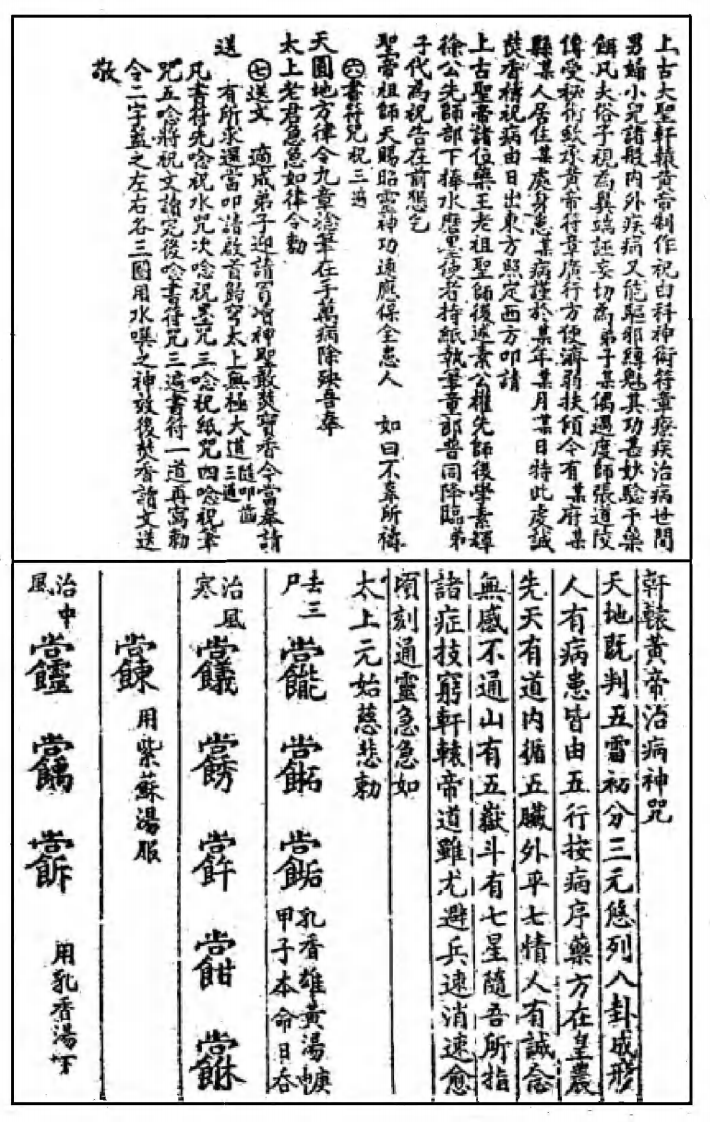 上古大聖軒轅黃帝制作祝由科神術符章療疾治病世間
男婦小兒諸般內外疾病又能驅邪縛魅其功甚妙驗于藥
餌凡夫俗子視為異端誣妄切為弟子某偶遇度師張道陵
傳受秘術欽承黃帝符章廣行方便濟弱扶傾今有某府某
縣某人居住某處身患某病謹於某年某月某日特此虔誠
焚香精祝病由日出東方照定西方叩請
上古聖帝諸位藥王老祖聖師後述素公權先師後學素輝
徐公先師部下捧水磨墨使者持紙執筆童郎普同降臨弟
子代為祝告在前懇乞
聖帝祖師天賜昭靈神功速應保全患人 如曰不辜所禱
㊅書符咒 祝三遍
天圓地方律令九章捻筆在手萬病除殃吾奉
太上老君急急如律令勅
㊆送文 適成弟子迎請冐瀆神聖敢焚寶香今當奉請
送 有所求還當叩請啟首歸穹太上無極大道 隨叩首三遍
凡書符先唸祝水咒次唸祝墨咒三唸祝紙咒四唸祝筆
咒五唸將祝文讀完後唸書符咒三遍書符一道再寫勅
令二字蓋之左右各三圈用水噀之神效後焚香讀文送
敬
軒轅黃帝治病神咒
天地既判五雷初分三元悠列八卦成形
人有病患皆由五行按病序藥方在皇農
先天有道內循五臟外平七情人有誠念
無感不通山有五嶽斗有七星隨吾所指
諸症技窮軒轅帝道雖尤避兵速消速愈
頃刻通靈急急如
太上元始慈悲勅
去三尸
乳香雄黃湯
甲子本命日吞
治風寒
用紫蘇湯服
治中風
用乳香湯下